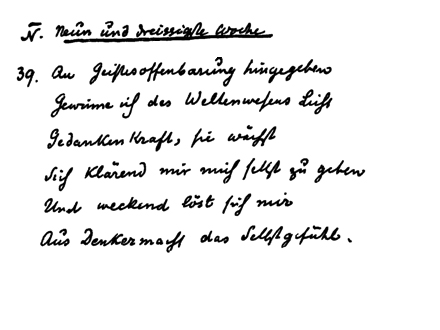 N̄. Neun und dreissigste Woche
39. An Geistesoffenbarung hingegeben
Gewinne ich des Weltenwesens Licht
Gedankenkraft, sie wächst
Sich klärend mir mich selbst zu geben
Und weckend löst sich mir
Aus Denkermacht das Selbstgefühl.